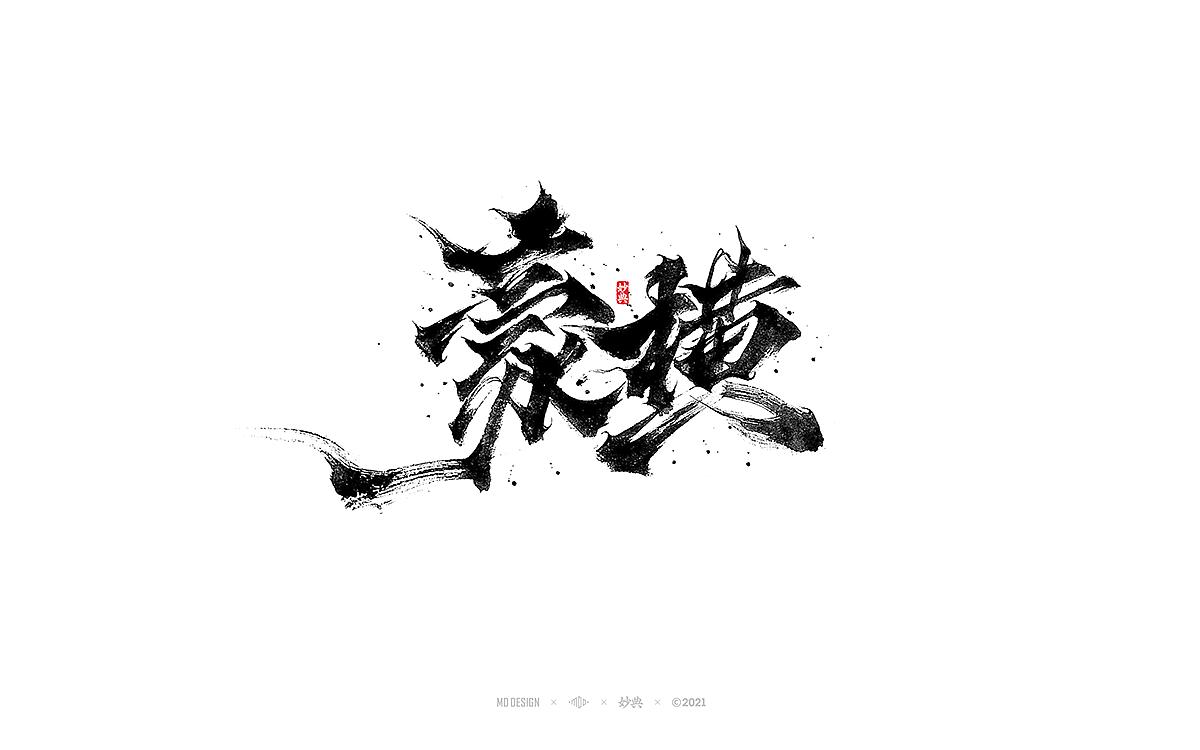 豪横
妙典
MD DESIGN × × 妙典 × ©2021